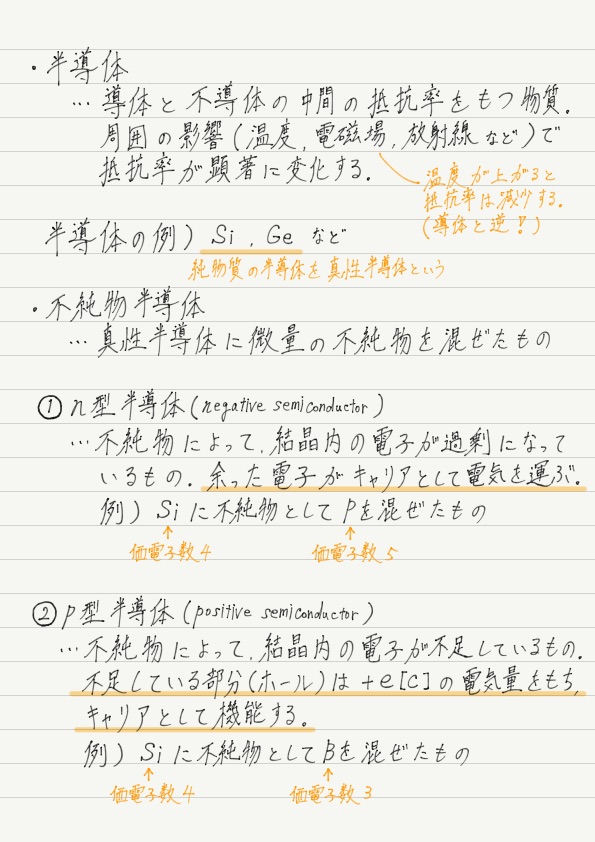 ・半導体
… 導体と不導体の中間の抵抗率をもつ物質.
周囲の影響(温度, 電磁場, 放射線など)で
抵抗率が顕著に変化する.
温度が上がると
抵抗率は減少する.
(導体と逆!)
半導体の例) Si, Ge など
純物質の半導体を真性半導体という
・不純物半導体
… 真性半導体に微量の不純物を混ぜたもの
① n型半導体(negative semiconductor)
… 不純物によって, 結晶内の電子が過剰になって
いるもの. 余った電子がキャリアとして電気を運ぶ.
例) Siに不純物としてPを混ぜたもの
↑ ↑
価電子数4 価電子数5
② p型半導体(positive semiconductor)
… 不純物によって, 結晶内の電子が不足しているもの.
不足している部分(ホール)は +e[C]の電気量をもち,
キャリアとして機能する.
例) Siに不純物としてBを混ぜたもの
↑ ↑
価電子数4 価電子数3